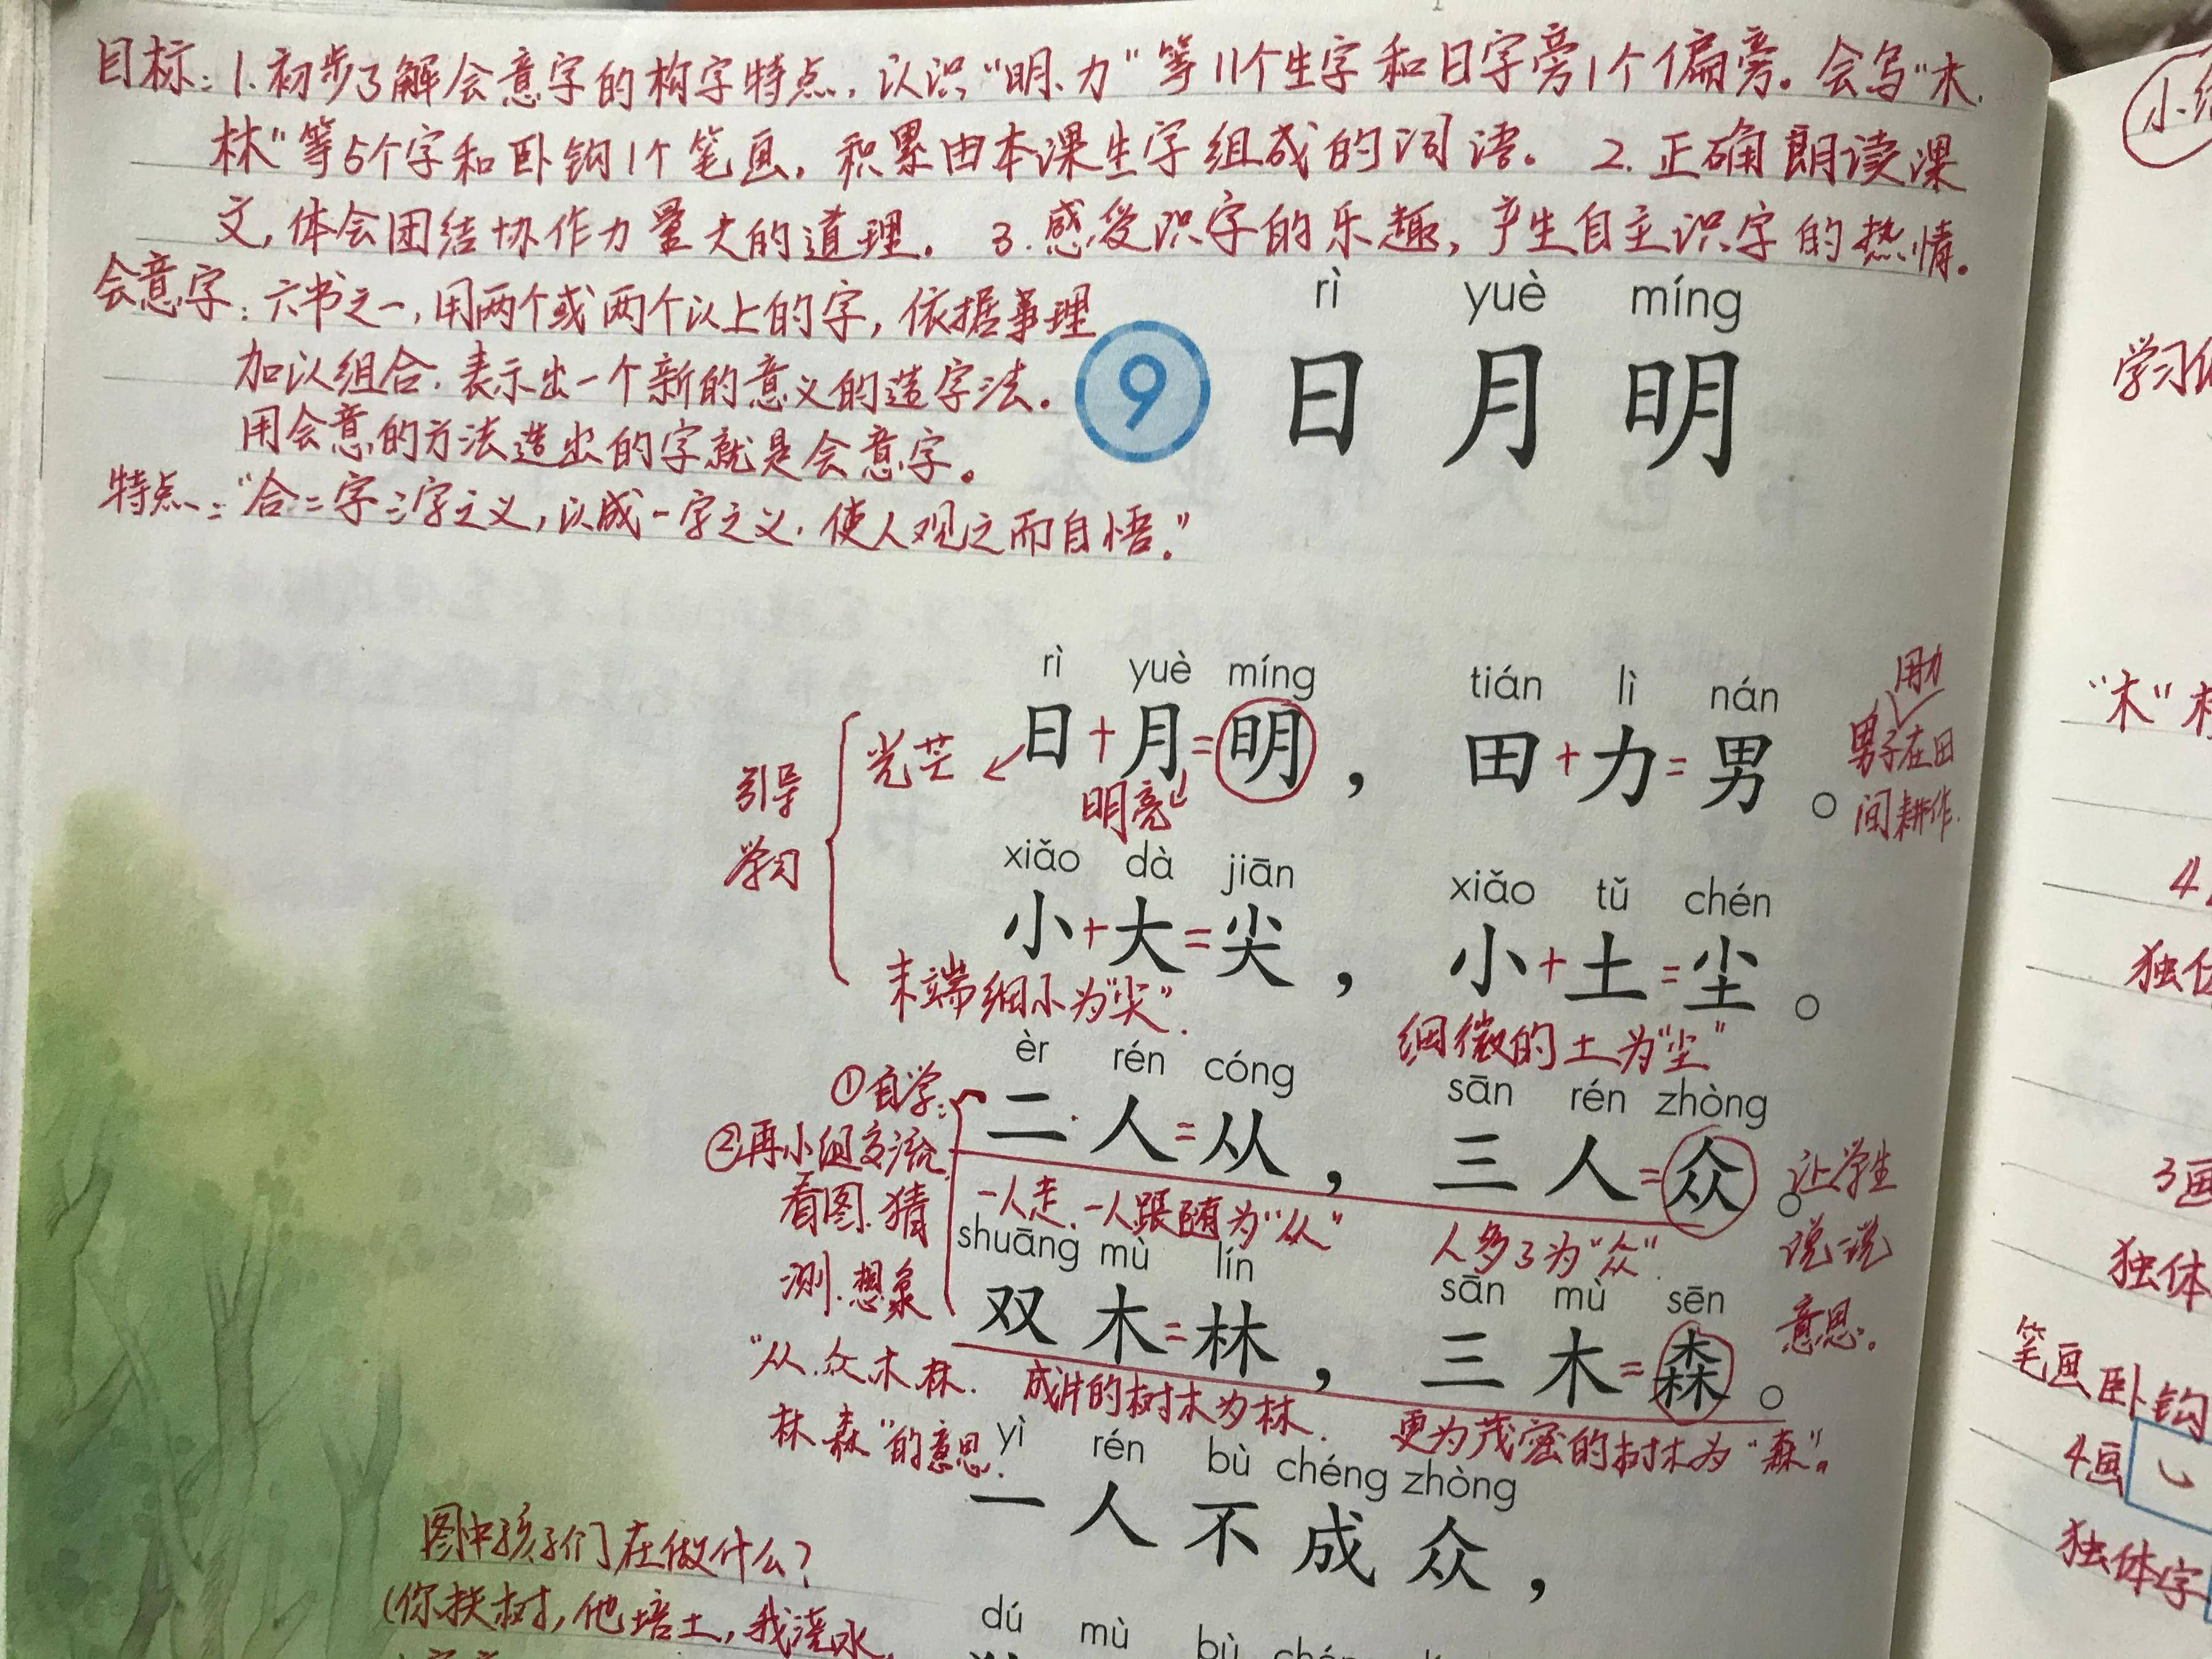 目标：1.初步了解会意字的构字特点，认识“明、力”等11个生字和日字旁1个偏旁。会写“木、
林”等5个字和卧钩1个笔画，积累由本课生字组成的词语。 2.正确朗读课
文，体会团结协作力量大的道理。 3.感受识字的乐趣，产生自主识字的热情。
会意字：六书之一，用两个或两个以上的字，依据事理
加以组合，表示出一个新的意义的造字法。
用会意的方法造出的字就是会意字。
特点：“合二字三字之义，以成一字之义，使人观之而自悟。”
rì yuè míng
9 日 月 明
rì yuè míng tián lì nán
日+月=明， 田+力=男。
光芒
明亮
引导
学习
用力
男子在田
间耕作.
xiǎo dà jiān xiǎo tǔ chén
小+大=尖， 小+土=尘。
末端细小为“尖”.
细微的土为“尘”
èr rén cóng sān rén zhòng
①自学： 二 人=从， 三 人=众。
②再小组交流
看图、猜
测、想象
一人走、一人跟随为“从”
人多了为“众”.
让学生
说一说
意思。
shuāng mù lín sān mù sēn
双 木=林， 三 木=森。
“从、众、木、林、
林、森”的意思.
成片的树木为林.
更为茂密的树木为“森”。
yì rén bù chéng zhòng
一 人 不 成 众，
图中孩子们在做什么？
(你扶树，他培土，我浇水，
dú mù bù
小
学习
“木”
4
独体
3画
独体
笔画卧钩
4画
独体字